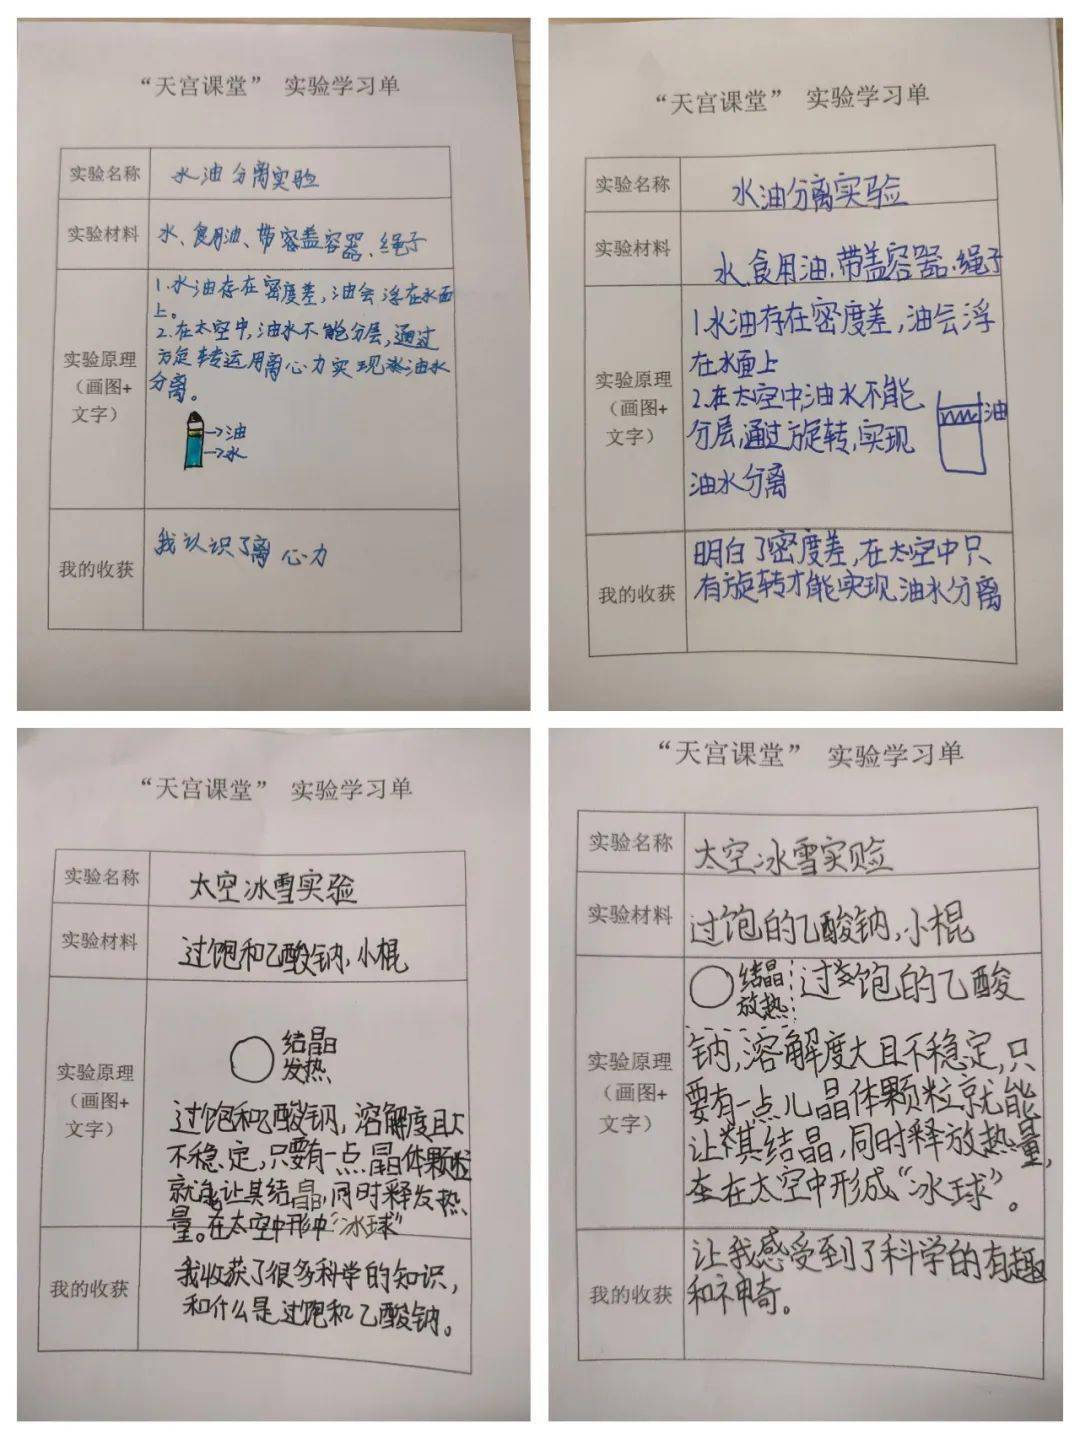 “天宫课堂” 实验学习单
实验名称
水油分离实验
实验材料
水、食用油、带容盖容器、绳子
实验原理
（画图+
文字）
1.水油存在密度差,油会浮在水面
上。
2.在太空中,油水不能分层,通过
旋转运用离心力实现油水
分离。
→油
→水
我的收获
我认识了离心力
“天宫课堂” 实验学习单
实验名称
水油分离实验
实验材料
水、食用油、带盖容器、绳子
实验原理
（画图+
文字）
1.水油存在密度差,油会浮
在水面上
2.在太空中,油水不能
分层,通过旋转,实现
油水分离
油
我的收获
明白了密度差,在太空中只
有旋转才能实现油水分离
“天宫课堂” 实验学习单
实验名称
太空冰雪实验
实验材料
过饱和乙酸钠,小棍
实验原理
（画图+
文字）
结晶
发热
过饱和乙酸钠,溶解度且上
不稳定,只要有一点晶体颗粒
就能让其结晶,同时释发热
量。在太空中形中“冰球”
我的收获
我收获了很多科学的知识,
和什么是过饱和乙酸钠。
“天宫课堂” 实验学习单
实验名称
太空冰雪实验
实验材料
过饱的乙酸钠,小棍
实验原理
（画图+
文字）
结晶
放热
过饱的乙酸
钠,溶解度大且不稳定,只
要有一点儿晶体颗粒就能
让其结晶,同时释放热量,
在太空中形成“冰球”。
我的收获
让我感受到了科学的有趣
和神奇。